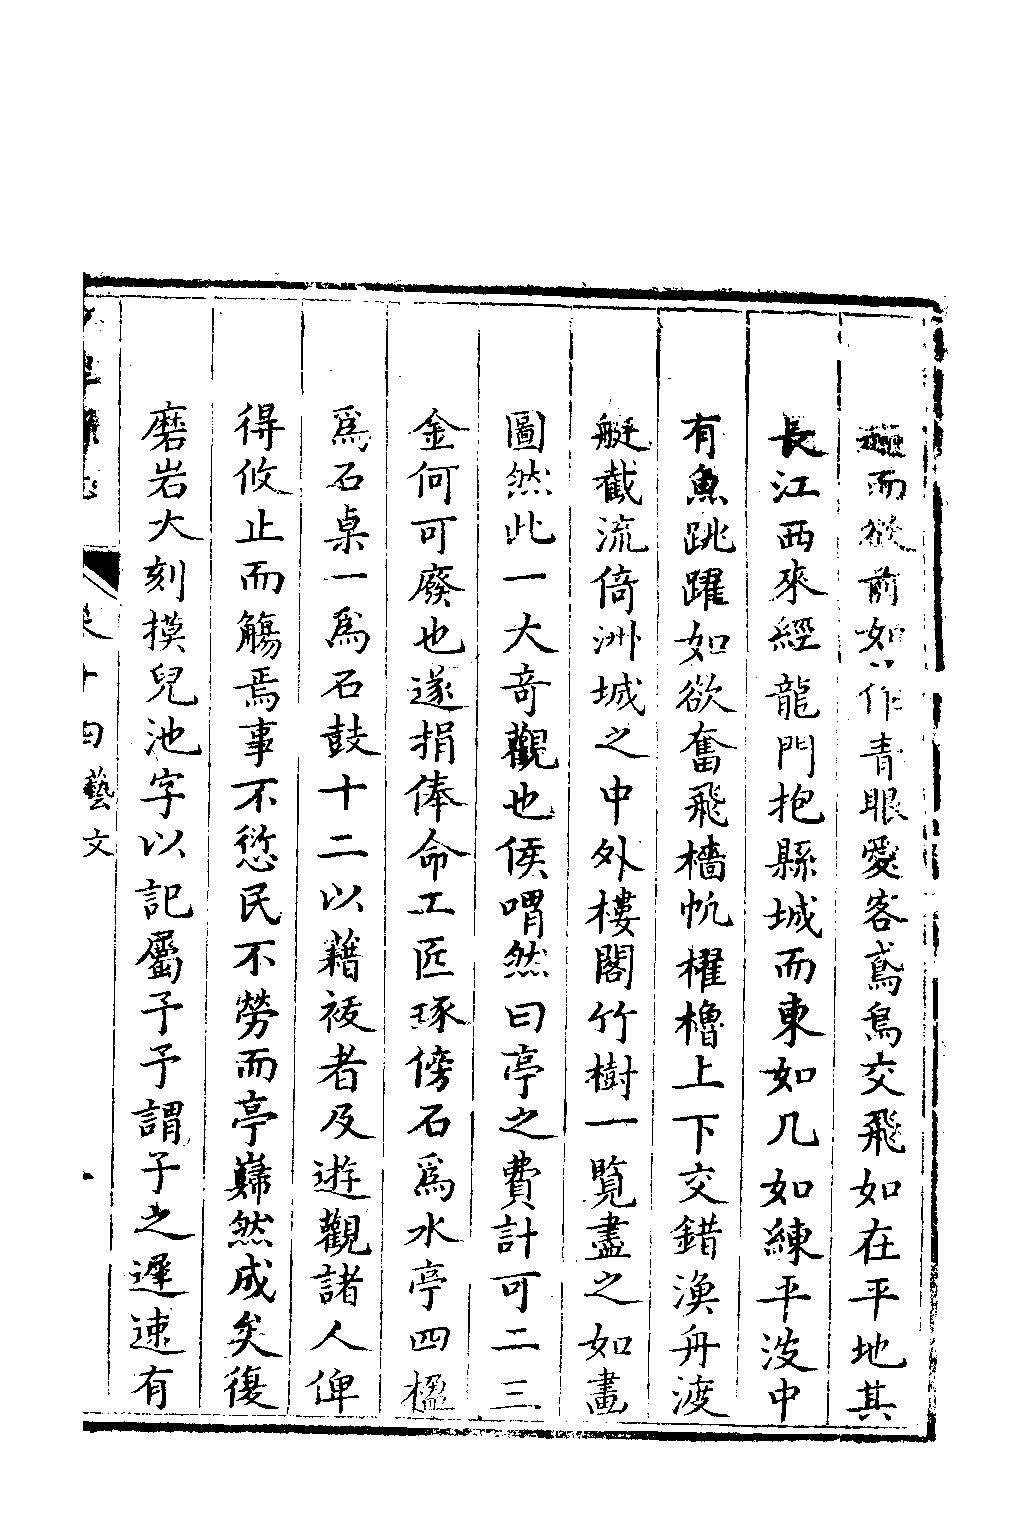 而欲前如作青眼愛客鳶魚交飛如在平地其
長江西來經龍門抱縣城而東如几如練平波中
有魚跳躍如欲奮飛檣帆櫂櫓上下交錯漁舟渡
艇截流倚洲城之中外樓閣竹樹一覽盡之如畵
圖然此一大奇觀也侯喟然曰亭之費計可二三
金何可廢也遂捐俸命工匠琢傍石爲水亭四楹
爲石桌一爲石鼓十二以藉祓者及遊觀諸人俾
得攸止而觴焉事不愆民不勞而亭巋然成矣復
磨岩大刻摸兒池字以記屬予予謂子之遲速有
十四 藝文